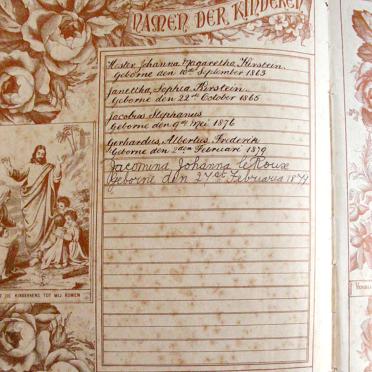 NAMEN DER KINDEREN
Hester Johanna Magaretha Kirstein.
Geborne den 10de September 1863
Janettha, Sophia Kirstein.
Geborne den 22ste October 1865
Jacobus Stephanus
Geborne den 9de Mei 1876
Gerhardus Albertus Frederik
Geborne den 3den Februari 1879
Jacomina Johanna le Roux
Geborne den 27st Februarie
DE KINDERKENS TOT MIJ KOMEN